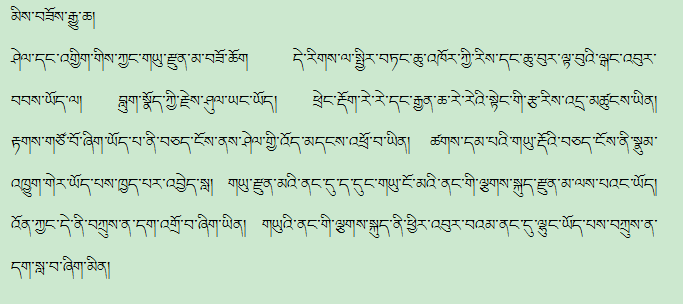 མིས་བཟོས་རྒྱུ་ཆ།
ཤེལ་དང་འགྱིག་གིས་ཀྱང་གཡུ་རྫུན་མ་བཟོ་ཆོག དེ་རིགས་ལ་སྤྱིར་བཏང་ཆུ་འཁོར་ཀྱི་རིས་དང་ཆུ་བུར་ལྟ་བུའི་ལྒང་འབུར་
བབས་ཡོད་ལ། བླུག་སྣོད་ཀྱི་རྗེས་ཤུལ་ཡང་ཡོད། ཕྲེང་རྡོག་རེ་རེ་དང་རྒྱན་ཆ་རེ་རེའི་སྟེང་གི་རྩ་རིས་འདྲ་མཚུངས་ཡིན།
རྟགས་གཙོ་བོ་ཞིག་ཡོད་པ་ནི་བཅད་ངོས་ནས་ཤེལ་གྱི་འོད་མདངས་འཕྲོ་བ་ཡིན། ཚགས་དམ་པའི་གཡུ་རྡོའི་བཅད་ངོས་ནི་སྣུམ་
འཁྱུག་གེར་ཡོད་པས་ཁྱད་པར་འབྱེད་སླ། གཡུ་རྫུན་མའི་ནང་དུ་ད་དུང་གཡུ་ངོ་མའི་ནང་གི་ལྕགས་སྐུད་རྫུན་མ་ལས་པའང་ཡོད།
འོན་ཀྱང་དེ་ནི་བཀྲུས་ན་དག་འགྲོ་བ་ཞིག་ཡིན། གཡུའི་ནང་གི་ལྕགས་སྐུད་ནི་ཕྱིར་འབུར་བའམ་ནང་དུ་ལྷུང་ཡོད་པས་བཀྲུས་ན་
དག་སླ་བ་ཞིག་མིན།